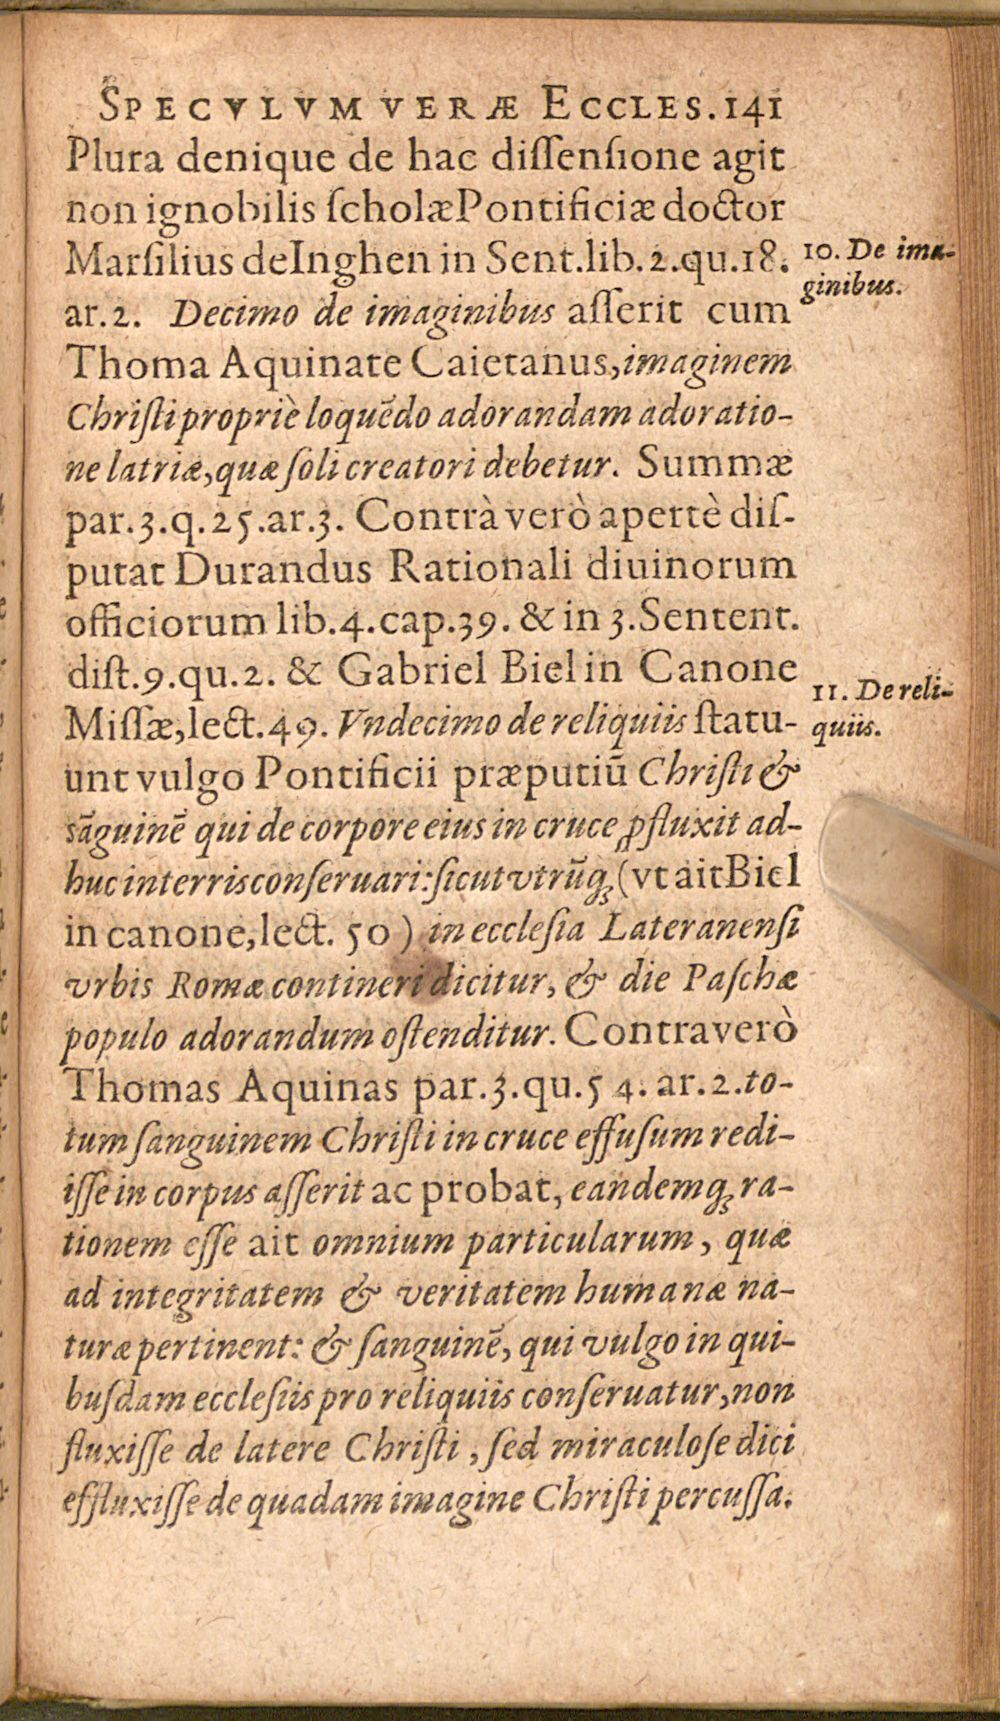 SPECVLVM VERÆ ECCLES. 141
Plura denique de hac diſſenſione agit
non ignobilis ſcholæ Pontificiæ doctor
Marſilius de Inghen in Sent.lib.2.qu.18.
10. De ima-
ginibus.
ar.2. Decimo de imaginibus aſſerit cum
Thoma Aquinate Caietanus, imaginem
Chriſti propriè loquẽdo adorandam adoratio-
ne latriæ, quæ ſoli creatori debetur. Summæ
par.3.q.25.ar.3. Contrà verò apertè diſ-
putat Durandus Rationali diuinorum
officiorum lib.4.cap.39. & in 3.Sentent.
diſt.9.qu.2. & Gabriel Biel in Canone
11. De reli-
quiis.
Miſſæ, lect.49. Vndecimo de reliquiis ſtatu-
unt vulgo Pontificii præputiũ Chriſti &
sãguinẽ qui de corpore eius in cruce ꝓfluxit ad-
huc in terris conſeruari: ſicut vtrũq; (vt ait Biel
in canone, lect. 50 ) in eccleſia Lateranenſi
vrbis Romæ contineri dicitur, & die Paſchæ
populo adorandum oſtenditur. Contra verò
Thomas Aquinas par.3.qu.54. ar.2. to-
tum ſanguinem Chriſti in cruce effuſum redi-
iſſe in corpus aſſerit ac probat, eandemq; ra-
tionem eſſe ait omnium particularum, quæ
ad integritatem & veritatem humanæ na-
turæ pertinent: & ſanguinẽ, qui vulgo in qui-
buſdam eccleſiis pro reliquiis conſeruatur, non
fluxiſſe de latere Chriſti, ſed miraculoſe dici
effluxiſſe de quadam imagine Chriſti percuſſa.